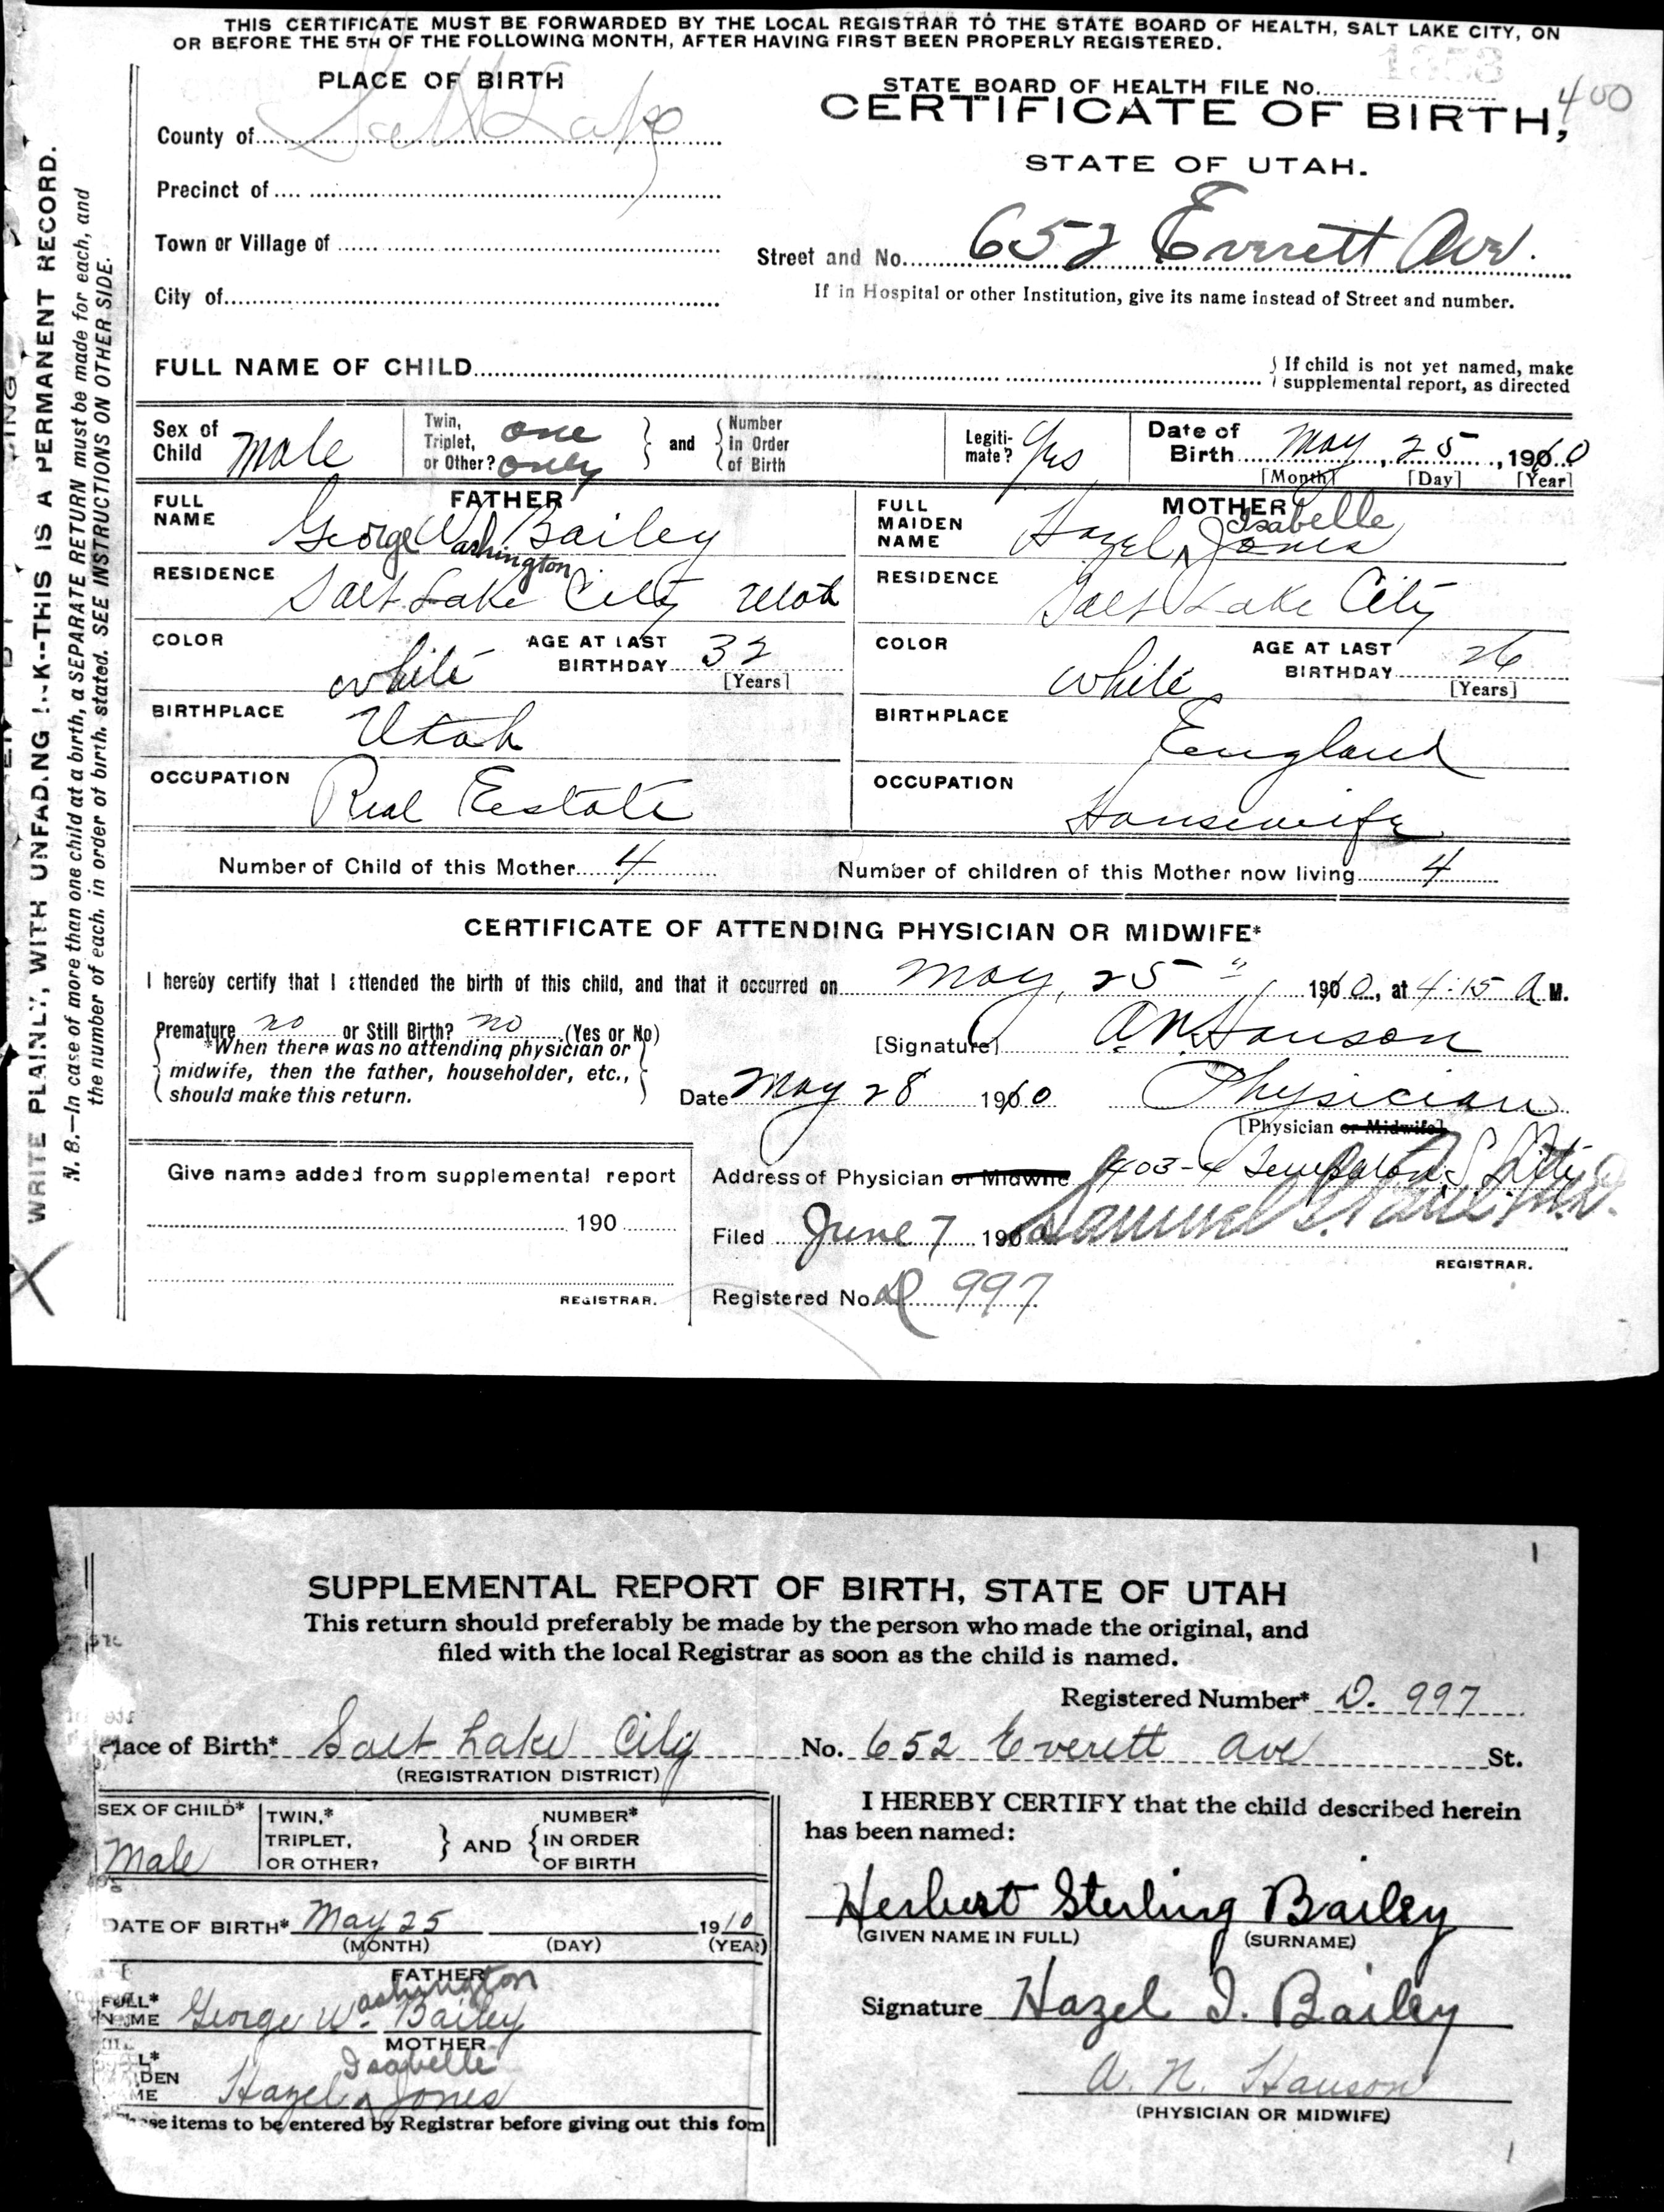 THIS CERTIFICATE MUST BE FORWARDED BY THE LOCAL REGISTRAR TO THE STATE BOARD OF HEALTH, SALT LAKE CITY, ON
OR BEFORE THE 5TH OF THE FOLLOWING MONTH, AFTER HAVING FIRST BEEN PROPERLY REGISTERED.
WRITE PLAINLY, WITH UNFADING INK--THIS IS A PERMANENT RECORD.
N. B.—In case of more than one child at a birth, a SEPARATE RETURN must be made for each, and
the number of each, in order of birth, stated. SEE INSTRUCTIONS ON OTHER SIDE.
PLACE OF BIRTH
County of Salt Lake
Precinct of
Town or Village of
City of
STATE BOARD OF HEALTH FILE No.
400
CERTIFICATE OF BIRTH,
STATE OF UTAH.
Street and No. 652 Everett Ave.
If in Hospital or other Institution, give its name instead of Street and number.
FULL NAME OF CHILD
If child is not yet named, make
supplemental report, as directed
Sex of Child Male
Twin, Triplet, or Other? one only
and
Number in Order of Birth
Legitimate? Yes
Date of Birth May, 25, 1910
[Month] [Day] [Year]
FATHER
FULL NAME George Washington Bailey
RESIDENCE Salt Lake City Utah
COLOR white
AGE AT LAST BIRTHDAY 32
[Years]
BIRTHPLACE Utah
OCCUPATION Real Eestate
MOTHER
FULL MAIDEN NAME Hazel Isabelle Jones
RESIDENCE Salt Lake City
COLOR white
AGE AT LAST BIRTHDAY 26
[Years]
BIRTHPLACE England
OCCUPATION Housewife
Number of Child of this Mother 4
Number of children of this Mother now living 4
CERTIFICATE OF ATTENDING PHYSICIAN OR MIDWIFE*
I hereby certify that I attended the birth of this child, and that it occurred on May, 25" 1910, at 4:15 A M.
Premature no or Still Birth? no (Yes or No)
*When there was no attending physician or
midwife, then the father, householder, etc.,
should make this return.
[Signature] A. N. Hanson
Date May 28 1910 Physician
[Physician or Midwife]
Give name added from supplemental report
190
REGISTRAR.
Address of Physician or Midwife 403-4
Filed June 7 1910 Samuel G. Paul M.D.
REGISTRAR.
Registered No. D 997
SUPPLEMENTAL REPORT OF BIRTH, STATE OF UTAH
This return should preferably be made by the person who made the original, and
filed with the local Registrar as soon as the child is named.
Registered Number* D. 997
Place of Birth* Salt Lake City No. 652 Everett Ave St.
(REGISTRATION DISTRICT)
SEX OF CHILD* Male
TWIN,* TRIPLET, OR OTHER?
AND
NUMBER* IN ORDER OF BIRTH
DATE OF BIRTH* May 25 1910
(MONTH) (DAY) (YEAR)
FATHER
FULL* NAME George Washington Bailey
MOTHER
Hazel Isabelle Jones
items to be entered by Registrar before giving out this fom
I HEREBY CERTIFY that the child described herein
has been named:
Herbert Sterling Bailey
(GIVEN NAME IN FULL) (SURNAME)
Signature Hazel I. Bailey
A. N. Hanson
(PHYSICIAN OR MIDWIFE)